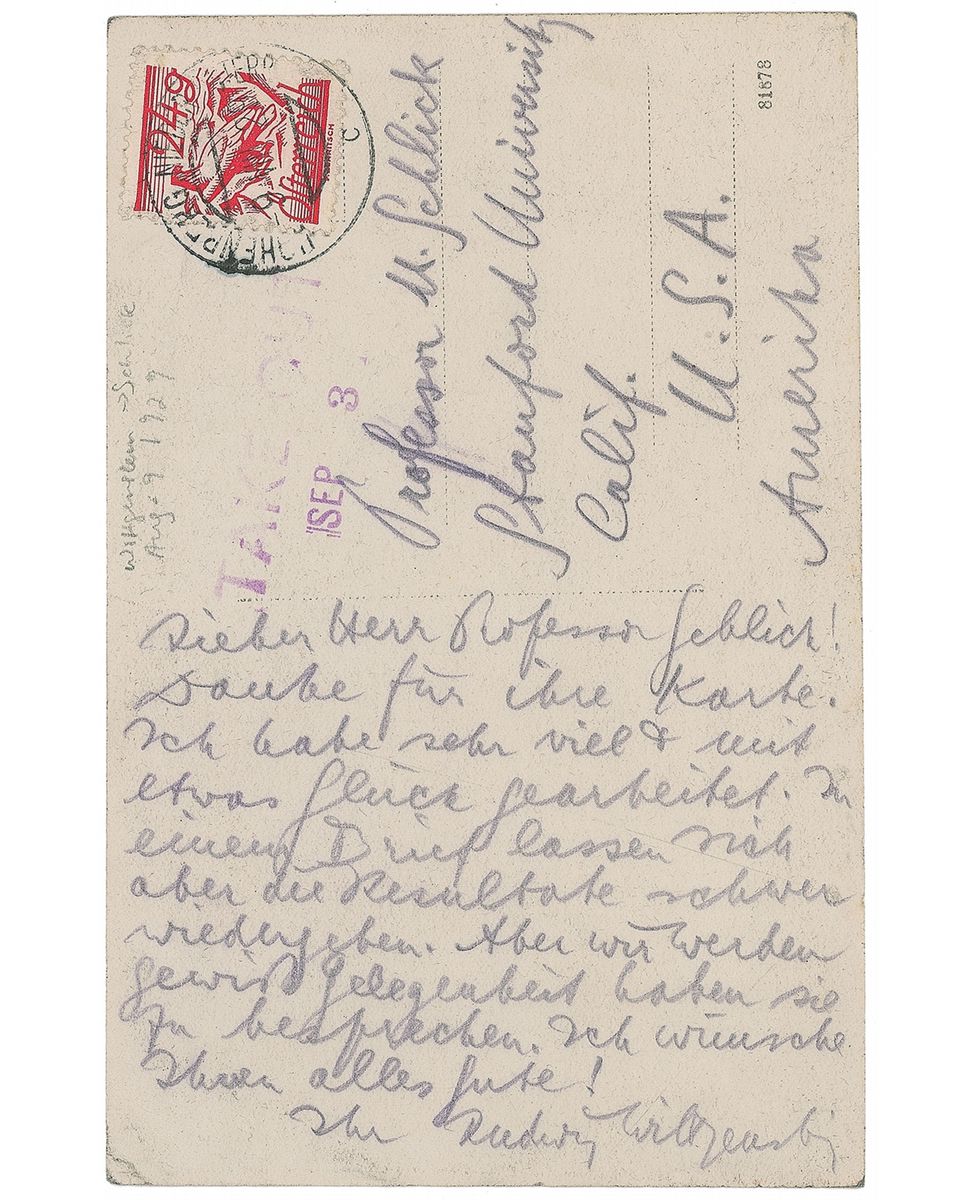 24g
Österreich
HOHENBERG
C
81878
Wittgenstein → Schlick
Aug - 9 1929
TAKE OUT
SEP 3
Professor M. Schlick
Stanford University
Calif.
U.S.A.
Amerika
Lieber Herr Professor Schlick!
Danke für ihre Karte.
Ich habe sehr viel & mit
etwas Glück gearbeitet. In
einem Brief lassen sich
aber die Resultate schwer
wiedergeben. Aber wir werden
gewiß Gelegenheit haben sie
zu besprechen. Ich wünsche
Ihnen alles Gute!
Ihr Ludwig Wittgenstein